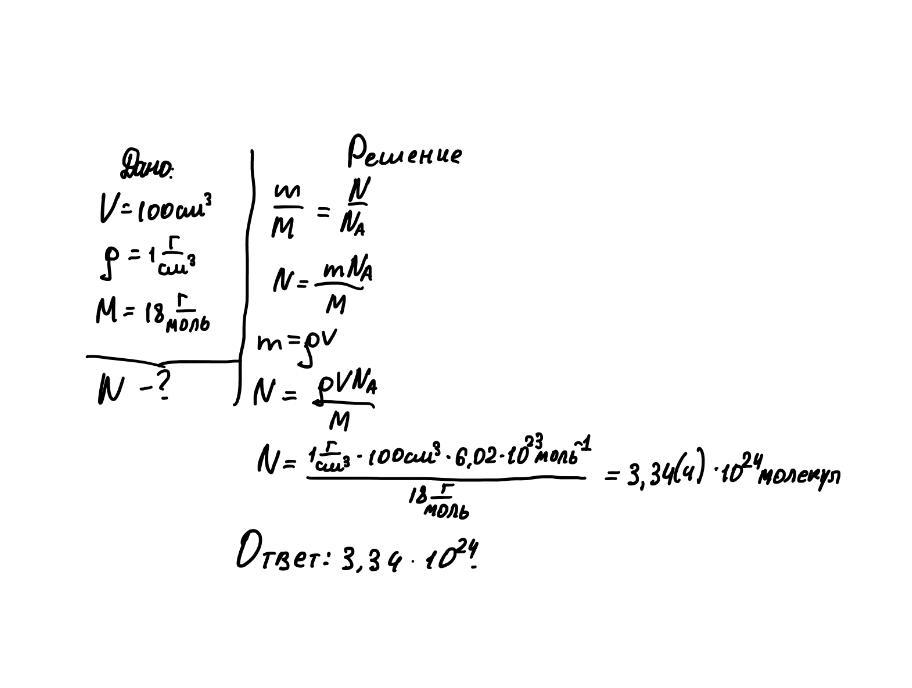 Дано:
V=100см³
ρ=1 г/см³
M=18 г/моль
N-?
Решение
m/M = N/N_A
N = mN_A/M
m=ρV
N = ρVN_A/M
N = (1 г/см³ · 100см³ · 6,02·10²³ моль⁻¹)/(18 г/моль) = 3,34(4)·10²⁴ молекул
Ответ: 3,34·10²⁴.